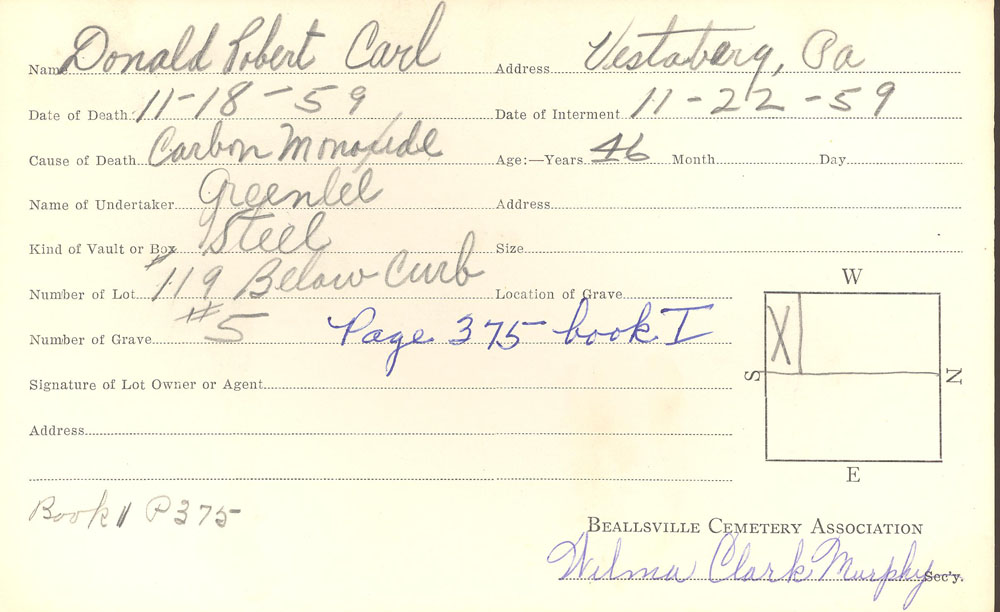 Name Donald Robert Carl Address Vestaberg, Pa
Date of Death 11-18-59 Date of Interment 11-22-59
Cause of Death Carbon Monoxide Age:—Years 46 Month Day
Name of Undertaker Greenlee Address
Kind of Vault or Box Steel Size
Number of Lot #119 Below Curb Location of Grave
Number of Grave #5 Page 375 book I
Signature of Lot Owner or Agent
Address
W
X
S
N
E
Book 11 P375
BEALLSVILLE CEMETERY ASSOCIATION
Wilma Clark Murphy Sec'y.